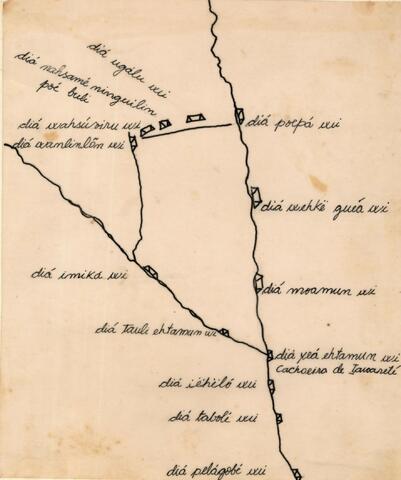 diá ugálu wi
diá nahsamé ninguilin
poé buli
diá wahsúviru wi
diá wanlinlün wi
diá poepá wi
diá wehkë guea wi
diá imika wi
diá moamun wi
diá tauli ehtamun wi
diá yeá ehtamun wi
Cachoeira de Iauareté
diá iëhëló wi
diá tabolé wi
diá pelágobé wi